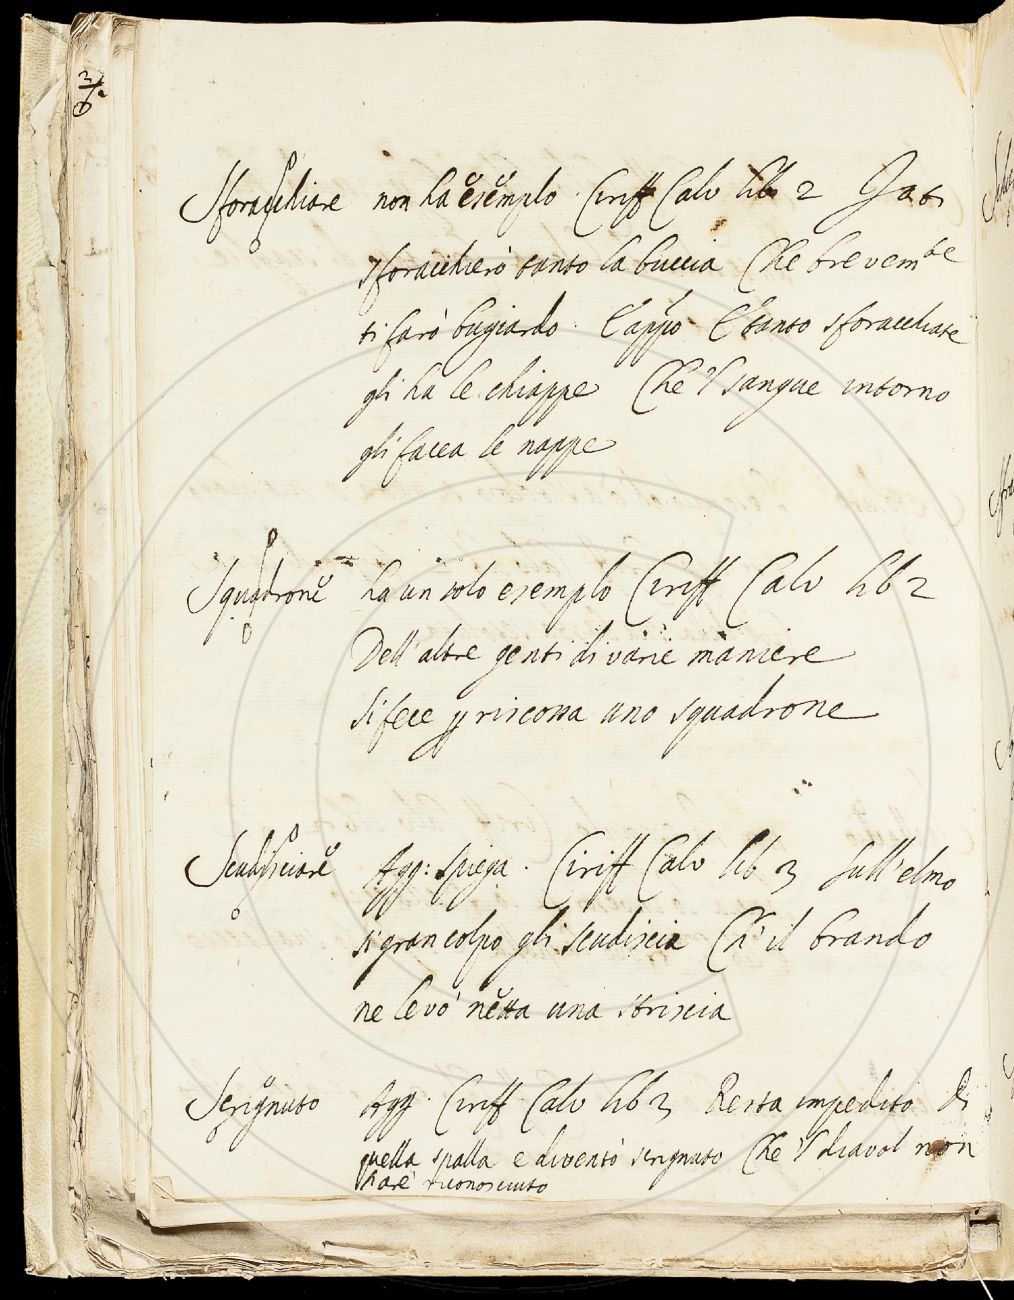 Sforacchiare non ha esemplo. Ciriff Calv lib 2 Io ti
sforacchierò tanto la buccia Che brevemte
ti farò bugiardo. E appo E tanto sforacchiate
gli ha le chiappe Che 'l sangue intorno
gli facea le nappe
Squadrone ha un solo esemplo Ciriff Calv lib 2
Dell'altre genti di varie maniere
si fece p riscossa uno squadrone
Scudisciare Agg: spiega. Ciriff Calv lib 3 Sull'elmo
si gran colpo gli scudiscia Ch' il brando
ne levò netta una striscia
Scrignuto Agg. Ciriff Calv lib 3 Resta impedito di
quella spalla e diventò scrignuto Che 'l diavol non
hare' riconosciuto